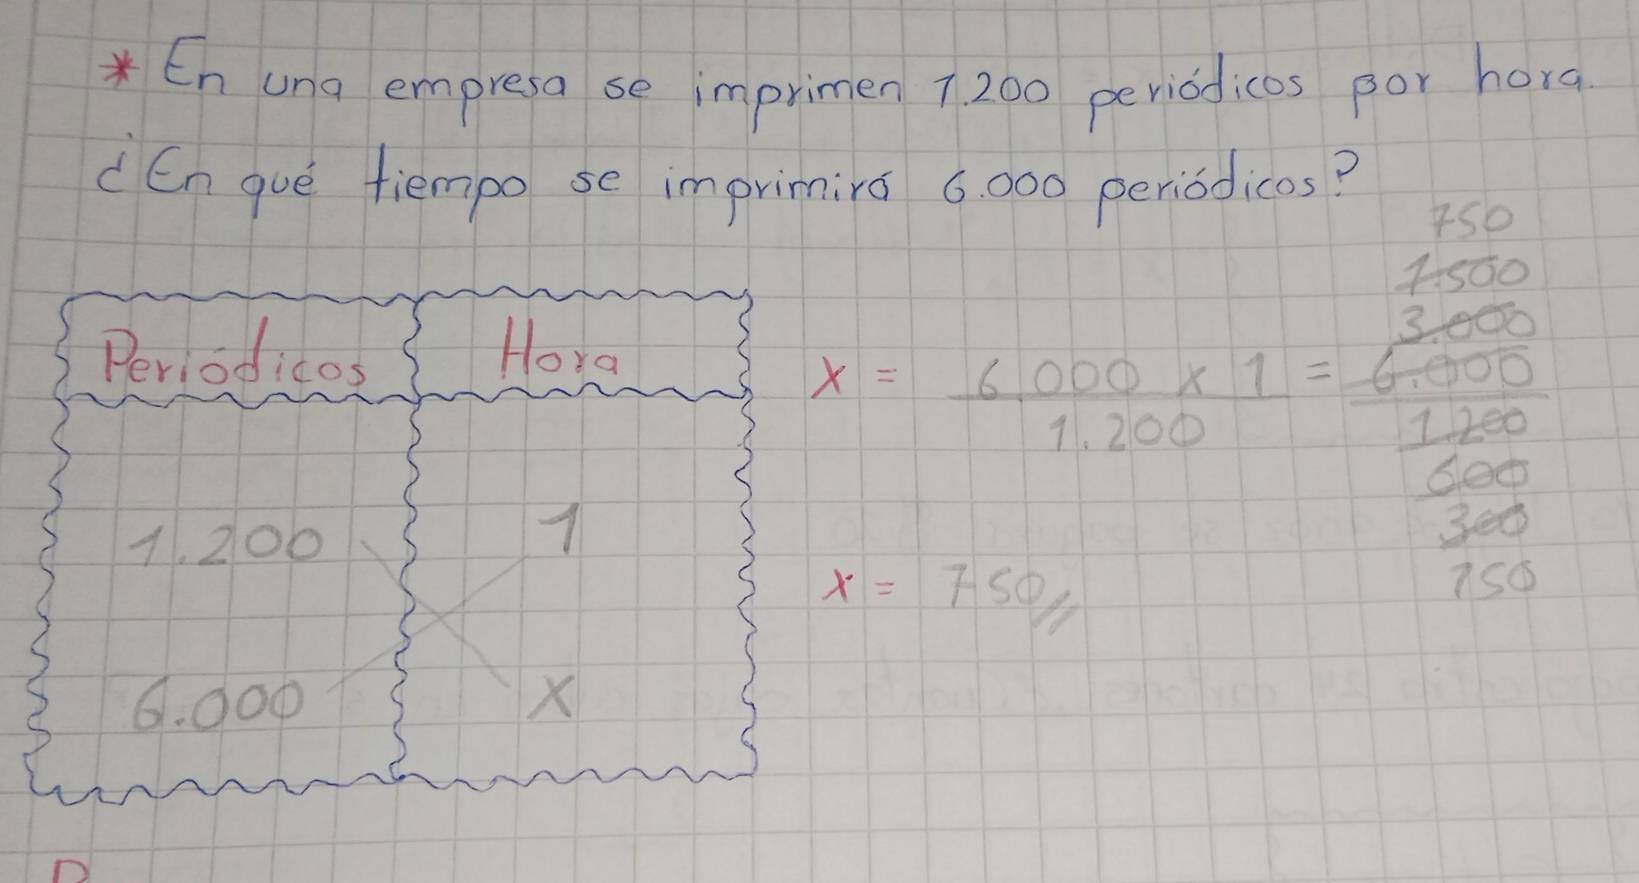 * En una empresa se imprimen 1.200 periódicos por hora.
¿En qué tiempo se imprimirá 6.000 periódicos?
Periódicos Hora
1.200 1
6.000 X
X = 6000 x 1 / 1.200 = 6.000 / 1200
750
1.500
3.000
600
300
150
X = 750//